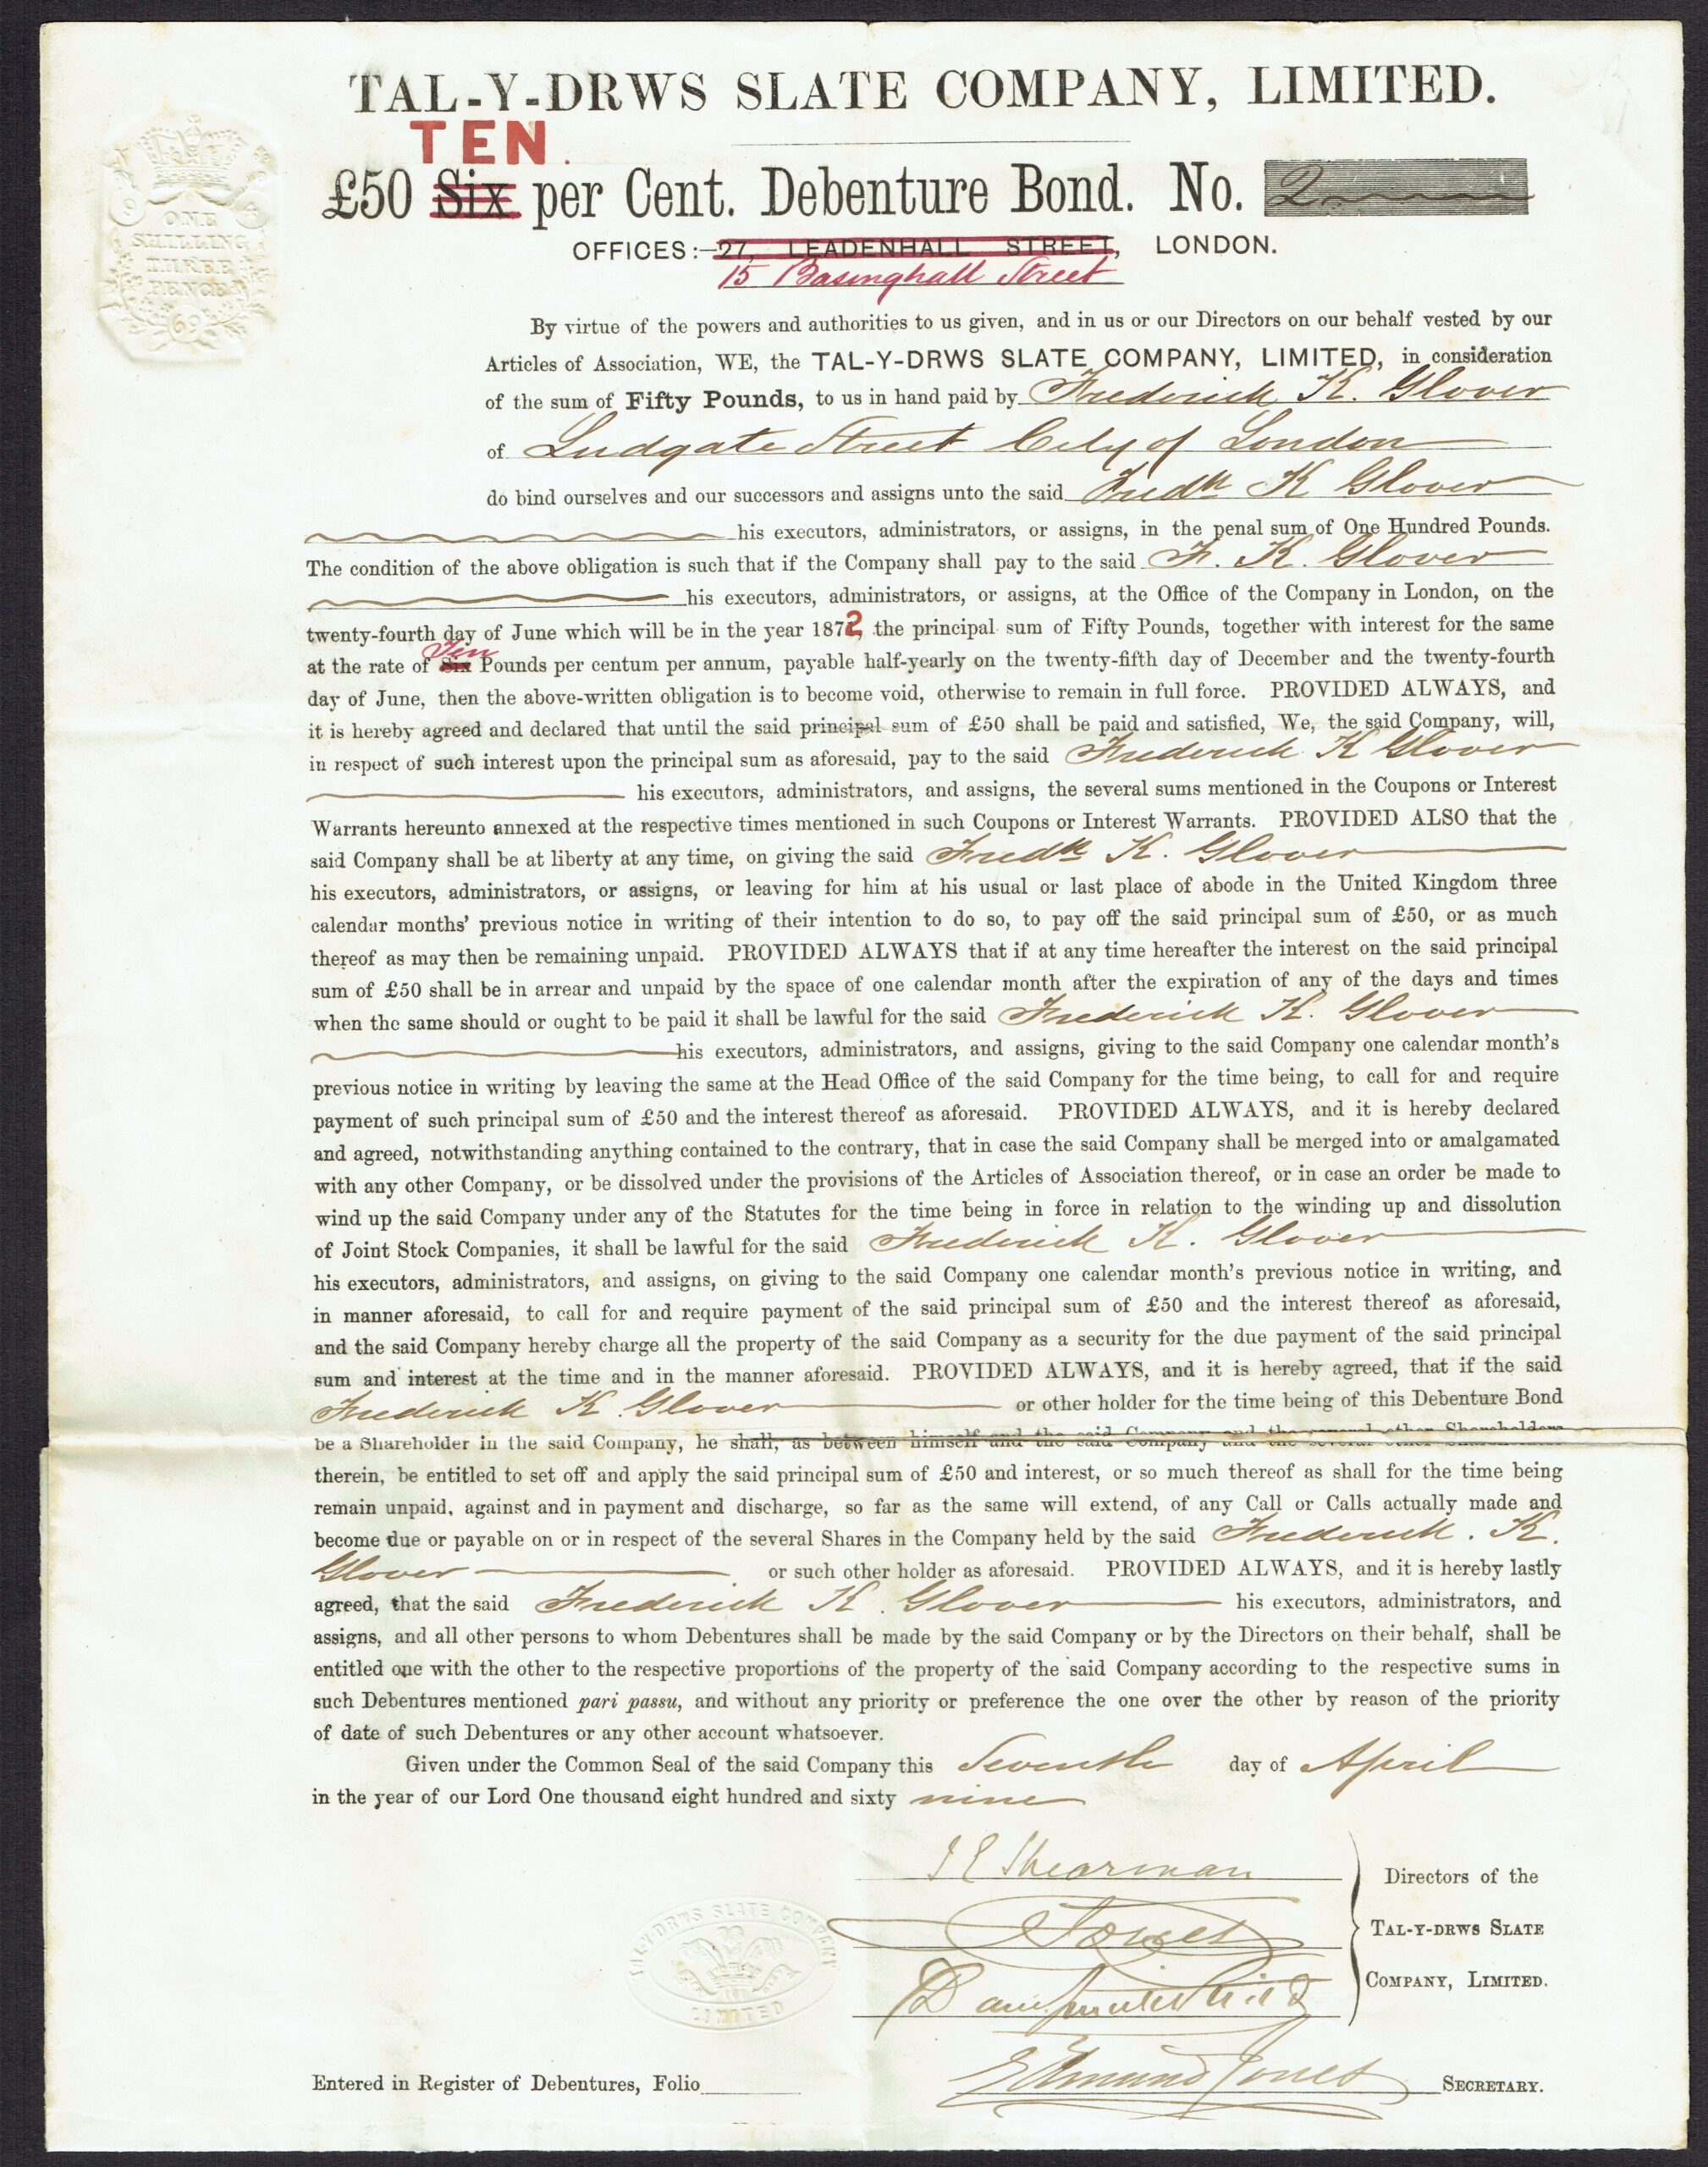 TAL-Y-DRWS SLATE COMPANY, LIMITED.
TEN.
£50 Six per Cent. Debenture Bond. No. 2
OFFICES:—27, LEADENHALL STREET, LONDON.
15 Basinghall Street
ONE
SHILLING
THREE
PENCE
69
By virtue of the powers and authorities to us given, and in us or our Directors on our behalf vested by our
Articles of Association, WE, the TAL-Y-DRWS SLATE COMPANY, LIMITED, in consideration
of the sum of Fifty Pounds, to us in hand paid by Frederick K. Glover
of Ludgate Street City of London
do bind ourselves and our successors and assigns unto the said Fredk K Glover
his executors, administrators, or assigns, in the penal sum of One Hundred Pounds.
The condition of the above obligation is such that if the Company shall pay to the said F. K. Glover
his executors, administrators, or assigns, at the Office of the Company in London, on the
twenty-fourth day of June which will be in the year 1872, the principal sum of Fifty Pounds, together with interest for the same
Ten
at the rate of Six Pounds per centum per annum, payable half-yearly on the twenty-fifth day of December and the twenty-fourth
day of June, then the above-written obligation is to become void, otherwise to remain in full force. PROVIDED ALWAYS, and
it is hereby agreed and declared that until the said principal sum of £50 shall be paid and satisfied, We, the said Company, will,
in respect of such interest upon the principal sum as aforesaid, pay to the said Frederick K Glover
his executors, administrators, and assigns, the several sums mentioned in the Coupons or Interest
Warrants hereunto annexed at the respective times mentioned in such Coupons or Interest Warrants. PROVIDED ALSO that the
said Company shall be at liberty at any time, on giving the said Fredk K. Glover
his executors, administrators, or assigns, or leaving for him at his usual or last place of abode in the United Kingdom three
calendar months' previous notice in writing of their intention to do so, to pay off the said principal sum of £50, or as much
thereof as may then be remaining unpaid. PROVIDED ALWAYS that if at any time hereafter the interest on the said principal
sum of £50 shall be in arrear and unpaid by the space of one calendar month after the expiration of any of the days and times
when the same should or ought to be paid it shall be lawful for the said Frederick K. Glover
his executors, administrators, and assigns, giving to the said Company one calendar month's
previous notice in writing by leaving the same at the Head Office of the said Company for the time being, to call for and require
payment of such principal sum of £50 and the interest thereof as aforesaid. PROVIDED ALWAYS, and it is hereby declared
and agreed, notwithstanding anything contained to the contrary, that in case the said Company shall be merged into or amalgamated
with any other Company, or be dissolved under the provisions of the Articles of Association thereof, or in case an order be made to
wind up the said Company under any of the Statutes for the time being in force in relation to the winding up and dissolution
of Joint Stock Companies, it shall be lawful for the said Frederick K. Glover
his executors, administrators, and assigns, on giving to the said Company one calendar month's previous notice in writing, and
in manner aforesaid, to call for and require payment of the said principal sum of £50 and the interest thereof as aforesaid,
and the said Company hereby charge all the property of the said Company as a security for the due payment of the said principal
sum and interest at the time and in the manner aforesaid. PROVIDED ALWAYS, and it is hereby agreed, that if the said
Frederick K. Glover or other holder for the time being of this Debenture Bond
be a Shareholder in the said Company, he shall, as between himself and the said Company and the several other Shareholders
therein, be entitled to set off and apply the said principal sum of £50 and interest, or so much thereof as shall for the time being
remain unpaid, against and in payment and discharge, so far as the same will extend, of any Call or Calls actually made and
become due or payable on or in respect of the several Shares in the Company held by the said Frederick. K.
Glover or such other holder as aforesaid. PROVIDED ALWAYS, and it is hereby lastly
agreed, that the said Frederick K. Glover his executors, administrators, and
assigns, and all other persons to whom Debentures shall be made by the said Company or by the Directors on their behalf, shall be
entitled one with the other to the respective proportions of the property of the said Company according to the respective sums in
such Debentures mentioned pari passu, and without any priority or preference the one over the other by reason of the priority
of date of such Debentures or any other account whatsoever.
Given under the Common Seal of the said Company this Seventh day of April
in the year of our Lord One thousand eight hundred and sixty nine
Shearman
Jones
Directors of the
TAL-Y-DRWS SLATE
COMPANY, LIMITED.
TAL-Y-DRWS SLATE COMPANY
LIMITED
Edmund Jones SECRETARY.
Entered in Register of Debentures, Folio